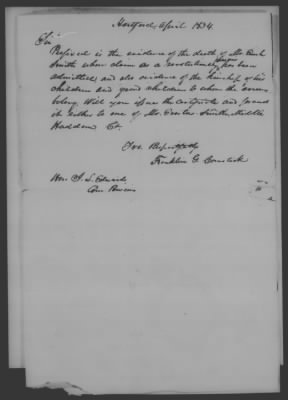 Hartford, April 1834.
Sir
Inclosed is the evidence of the death of Mr.
Smith whose claim as a revolutionary has been
admitted, and also evidence of the heirship of his
children and grand children to whom the arrears
belong. Will you issue the certificate and send
it either to one of Mr. Smith Middle
Haddam Ct.
Yrs. Respectfully
Franklin G. Comstock
Hon. J. L. Edwards
Com Pensions